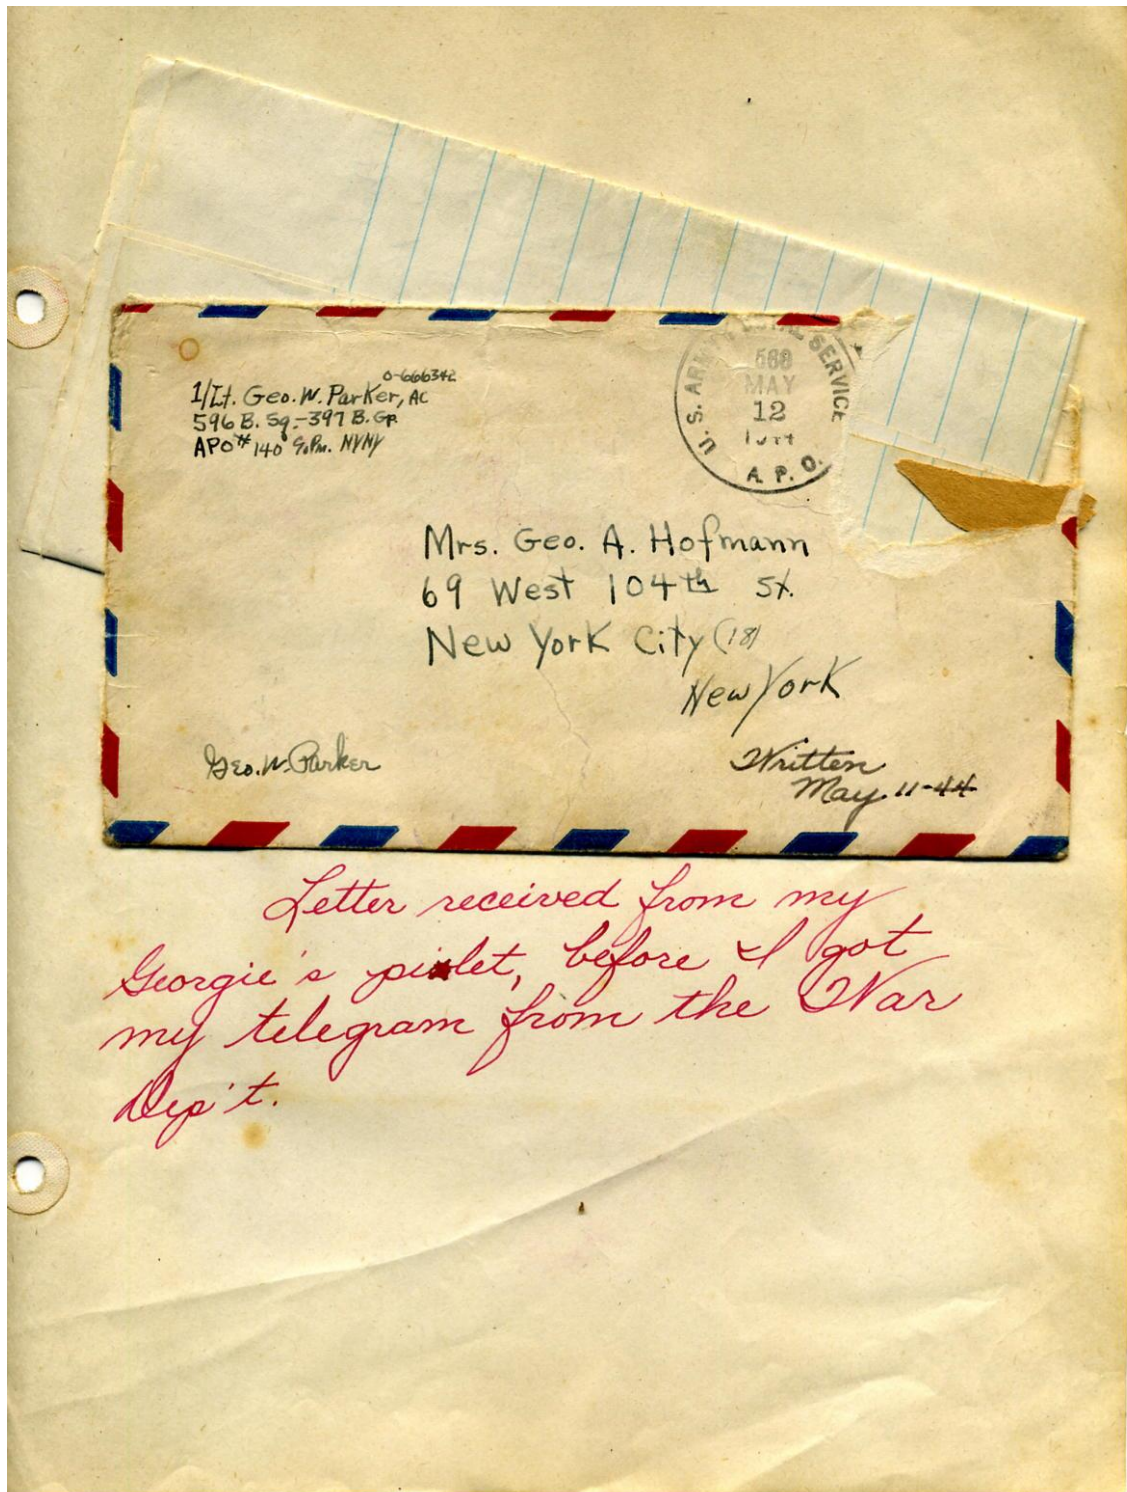 O-666342
1/Lt. Geo. W. Parker, AC
596 B. Sq.-397 B. Gp.
APO # 140 % P.M. NYNY
U.S. ARMY POSTAL SERVICE
MAY
12
1944
A. P. O.
Mrs. Geo. A. Hofmann
69 West 104th St.
New York City (18)
New York
Geo. W. Parker
Written
May 11-44
Letter received from my
Georgie's pilet, before I got
my telegram from the War
Dep't.